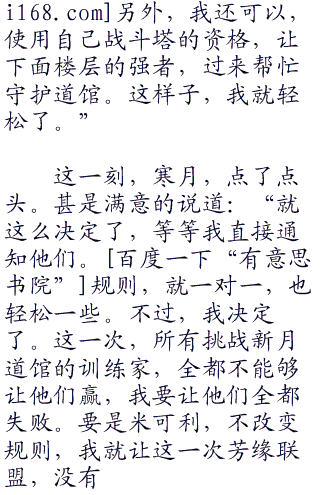 i168.com]另外，我还可以，
使用自己战斗塔的资格，让
下面楼层的强者，过来帮忙
守护道馆。这样子，我就轻
松了。”
这一刻，寒月，点了点
头。甚是满意的说道：“就
这么决定了，等等我直接通
知他们。[百度一下“有意思
书院”]规则，就一对一，也
轻松一些。不过，我决定
了。这一次，所有挑战新月
道馆的训练家，全都不能够
让他们赢，我要让他们全都
失败。要是米可利，不改变
规则，我就让这一次芳缘联
盟，没有